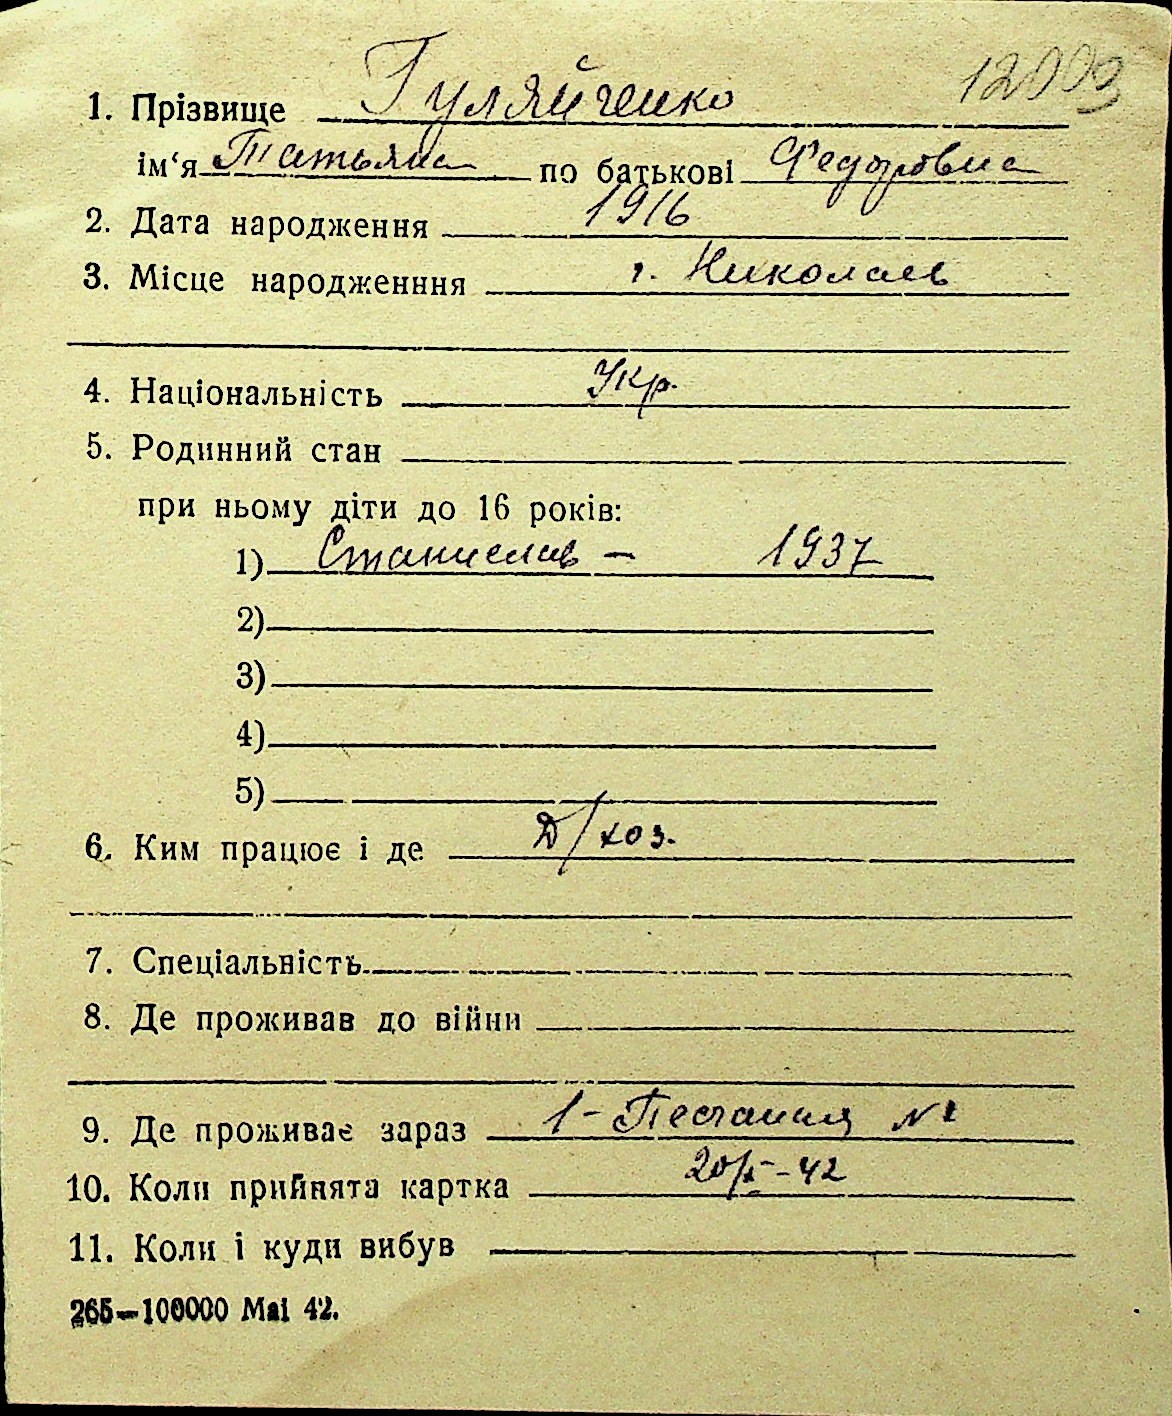 12003
1. Прізвище Гуляйченко
ім‘я Татьяна по батькові Федоровна
2. Дата народження 1916
3. Місце народженння г. Николаев
4. Національність Укр.
5. Родинний стан
при ньому діти до 16 років:
1) Станислав – 1937
2)
3)
4)
5)
6. Ким працює і де Д/хоз.
7. Спеціальність
8. Де проживав до війни
9. Де проживає зараз 1-Песчаная №
10. Коли прийнята картка 20/X-42
11. Коли і куди вибув
265—100000 Mai 42.